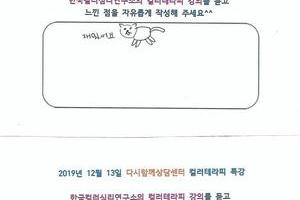 한국컬러심리연구소의 컬러테라피 강의를 듣고
느낀 점을 자유롭게 작성해 주세요^^
재밌어요
2019년 12월 13일 다시함께상담센터 컬러테라피 특강
한국컬러심리연구소의 컬러테라피 강의를 듣고